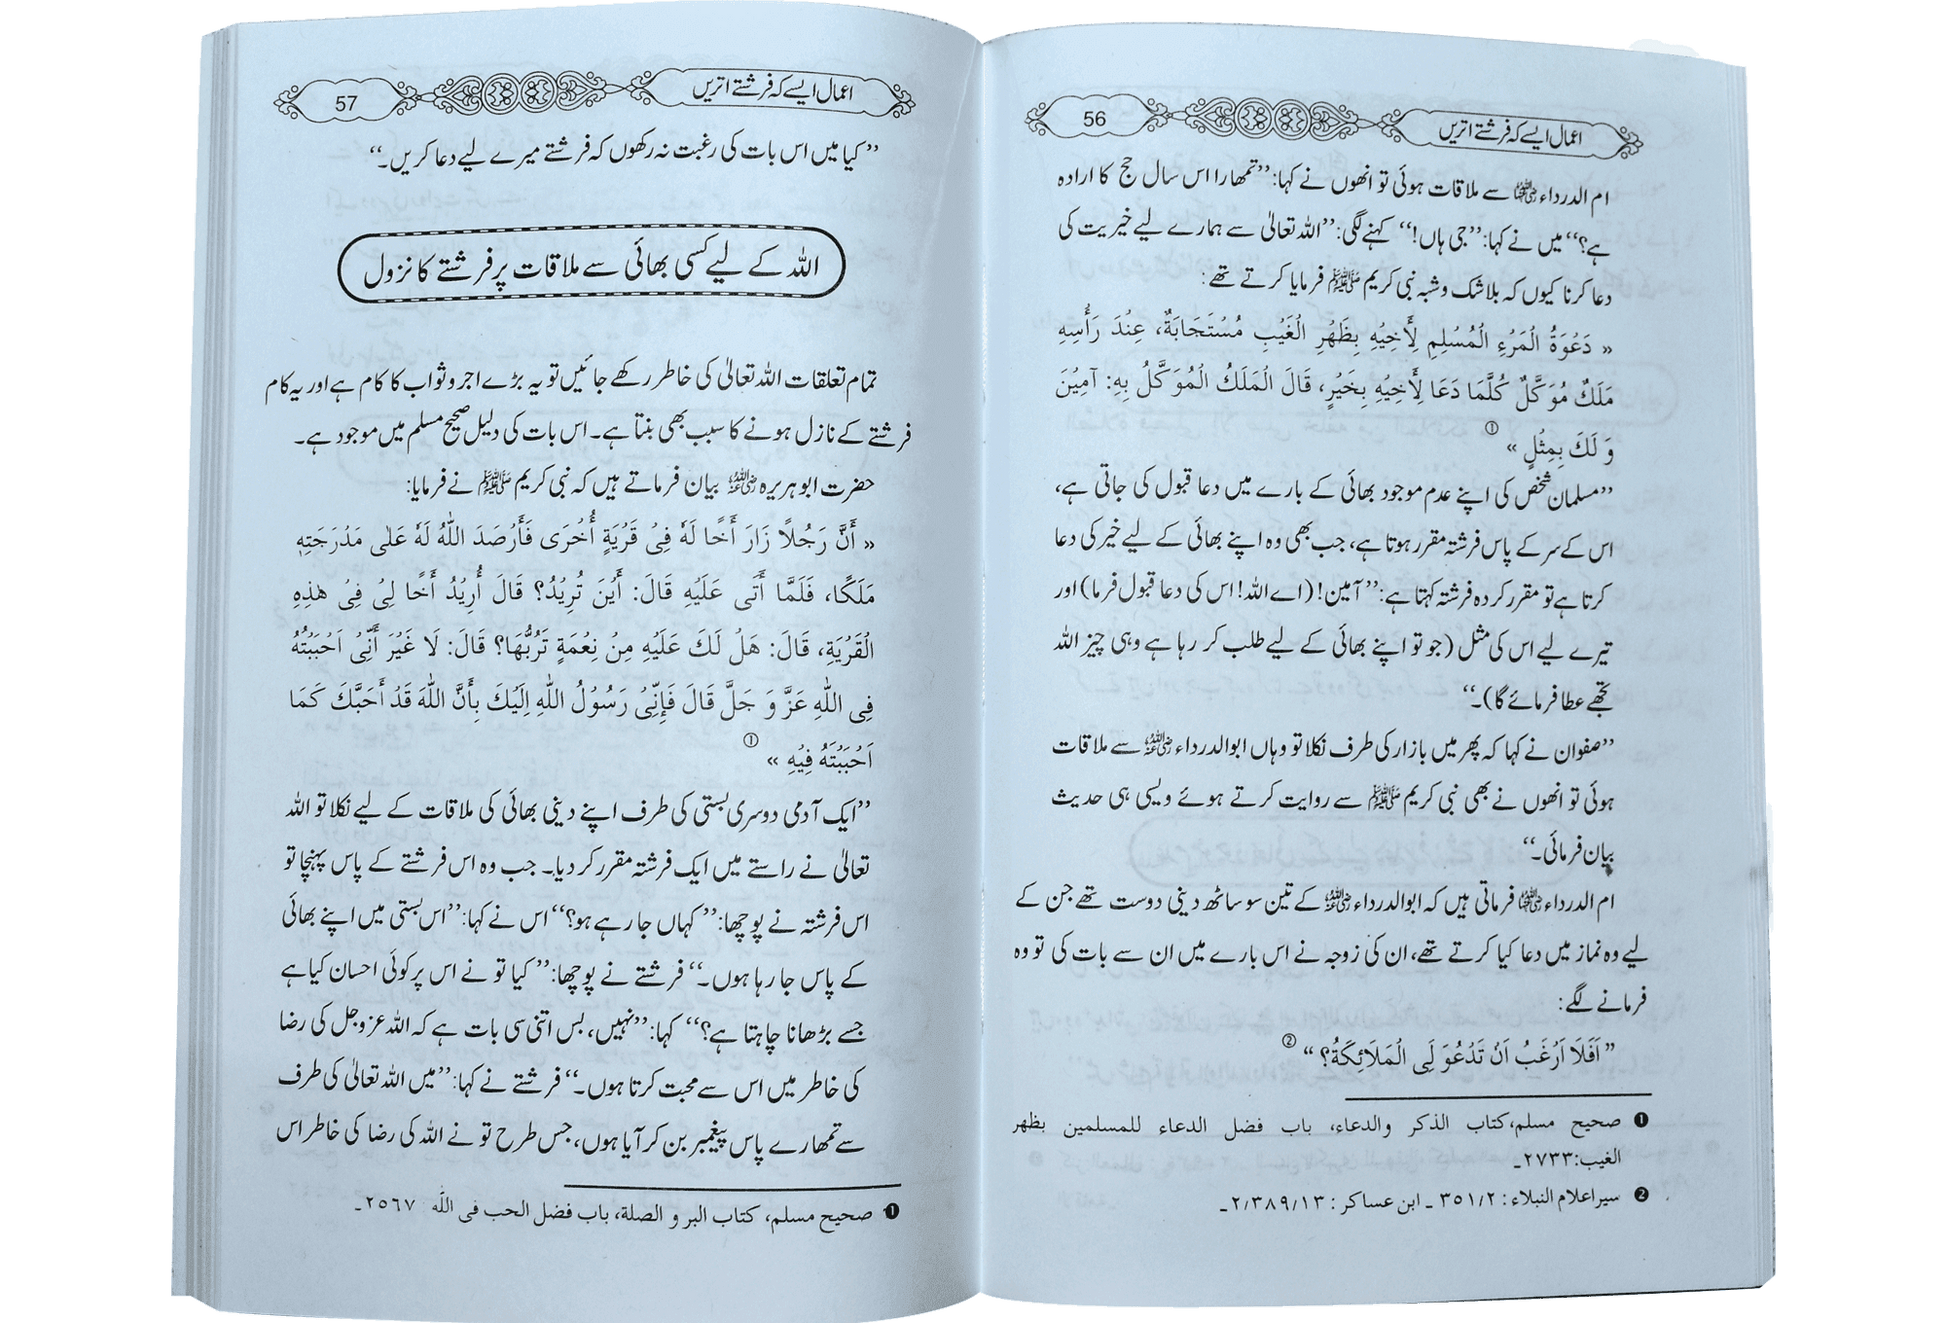 اعمال ایسے کہ فرشتے اتریں
56
ام الدرداء رضی اللہ عنہا سے ملاقات ہوئی تو انھوں نے کہا: ’’تمھارا اس سال حج کا ارادہ
ہے؟‘‘ میں نے کہا: ’’جی ہاں!‘‘ کہنے لگی: ’’اللہ تعالیٰ سے ہمارے لیے خیریت کی
دعا کرنا کیوں کہ بلاشک وشبہ نبی کریم ﷺ فرمایا کرتے تھے:
« دَعْوَةُ الْمَرْءِ الْمُسْلِمِ لِأَخِيْهِ بِظَهْرِ الْغَيْبِ مُسْتَجَابَةٌ، عِنْدَ رَأْسِهِ
مَلَكٌ مُوَكَّلٌ كُلَّمَا دَعَا لِأَخِيْهِ بِخَيْرٍ، قَالَ الْمَلَكُ الْمُوَكَّلُ بِهِ: آمِيْنَ
وَ لَكَ بِمِثْلٍ » ①
’’مسلمان شخص کی اپنے عدم موجود بھائی کے بارے میں دعا قبول کی جاتی ہے،
اس کے سر کے پاس فرشتہ مقرر ہوتا ہے، جب بھی وہ اپنے بھائی کے لیے خیر کی دعا
کرتا ہے تو مقرر کردہ فرشتہ کہتا ہے: ’’آمین! (اے اللہ! اس کی دعا قبول فرما) اور
تیرے لیے اس کی مثل (جو تو اپنے بھائی کے لیے طلب کر رہا ہے وہی چیز اللہ
تجھے عطا فرمائے گا)۔‘‘
’’صفوان نے کہا کہ پھر میں بازار کی طرف نکلا تو وہاں ابوالدرداء رضی اللہ عنہ سے ملاقات
ہوئی تو انھوں نے بھی نبی کریم ﷺ سے روایت کرتے ہوئے ویسی ہی حدیث
بیان فرمائی۔‘‘
ام الدرداء رضی اللہ عنہا فرماتی ہیں کہ ابوالدرداء رضی اللہ عنہ کے تین سو ساٹھ دینی دوست تھے جن کے
لیے وہ نماز میں دعا کیا کرتے تھے، ان کی زوجہ نے اس بارے میں ان سے بات کی تو وہ
فرمانے لگے:
” اَفَلَا اَرْغَبُ اَنْ تَدْعُوَ لِى الْمَلَائِكَةُ؟ “ ②
❶ صحیح مسلم، کتاب الذکر والدعاء، باب فضل الدعاء للمسلمین بظهر
الغیب: ۲۷۳۳۔
❷ سیر اعلام النبلاء : ۳۵۱/۲ ۔ ابن عساکر : ۲/۳۸۹/۱۳۔
اعمال ایسے کہ فرشتے اتریں
57
’’کیا میں اس بات کی رغبت نہ رکھوں کہ فرشتے میرے لیے دعا کریں۔‘‘
اللہ کے لیے کسی بھائی سے ملاقات پر فرشتے کا نزول
تمام تعلقات اللہ تعالیٰ کی خاطر رکھے جائیں تو یہ بڑے اجر و ثواب کا کام ہے اور یہ کام
فرشتے کے نازل ہونے کا سبب بھی بنتا ہے۔ اس بات کی دلیل صحیح مسلم میں موجود ہے۔
حضرت ابو ہریرہ رضی اللہ عنہ بیان فرماتے ہیں کہ نبی کریم ﷺ نے فرمایا:
« أَنَّ رَجُلًا زَارَ أَخًا لَهُ فِىْ قَرْيَةٍ أُخْرَى فَأَرْصَدَ اللّٰهُ لَهُ عَلٰى مَدْرَجَتِهٖ
مَلَكًا، فَلَمَّا أَتَى عَلَيْهِ قَالَ: أَيْنَ تُرِيْدُ؟ قَالَ أُرِيْدُ أَخًا لِىْ فِىْ هٰذِهِ
الْقَرْيَةِ، قَالَ: هَلْ لَكَ عَلَيْهِ مِنْ نِعْمَةٍ تَرُبُّهَا؟ قَالَ: لَا غَيْرَ أَنِّىْ اَحْبَبْتُهُ
فِى اللّٰهِ عَزَّ وَ جَلَّ قَالَ فَإِنِّىْ رَسُوْلُ اللّٰهِ اِلَيْكَ بِأَنَّ اللّٰهَ قَدْ أَحَبَّكَ كَمَا
اَحْبَبْتَهُ فِيْهِ » ①
’’ایک آدمی دوسری بستی کی طرف اپنے دینی بھائی کی ملاقات کے لیے نکلا تو اللہ
تعالیٰ نے راستے میں ایک فرشتہ مقرر کر دیا۔ جب وہ اس فرشتے کے پاس پہنچا تو
اس فرشتہ نے پوچھا: ’’کہاں جا رہے ہو؟‘‘ اس نے کہا: ’’اس بستی میں اپنے بھائی
کے پاس جا رہا ہوں۔‘‘ فرشتے نے پوچھا: ’’کیا تو نے اس پر کوئی احسان کیا ہے
جسے بڑھانا چاہتا ہے؟‘‘ کہا: ’’نہیں، بس اتنی سی بات ہے کہ اللہ عزوجل کی رضا
کی خاطر میں اس سے محبت کرتا ہوں۔‘‘ فرشتے نے کہا: ’’میں اللہ تعالیٰ کی طرف
سے تمھارے پاس پیغمبر بن کر آیا ہوں، جس طرح تو نے اللہ کی رضا کی خاطر اس
❶ صحیح مسلم، کتاب البر و الصلة، باب فضل الحب فی اللّٰه : ۲۵۶۷۔